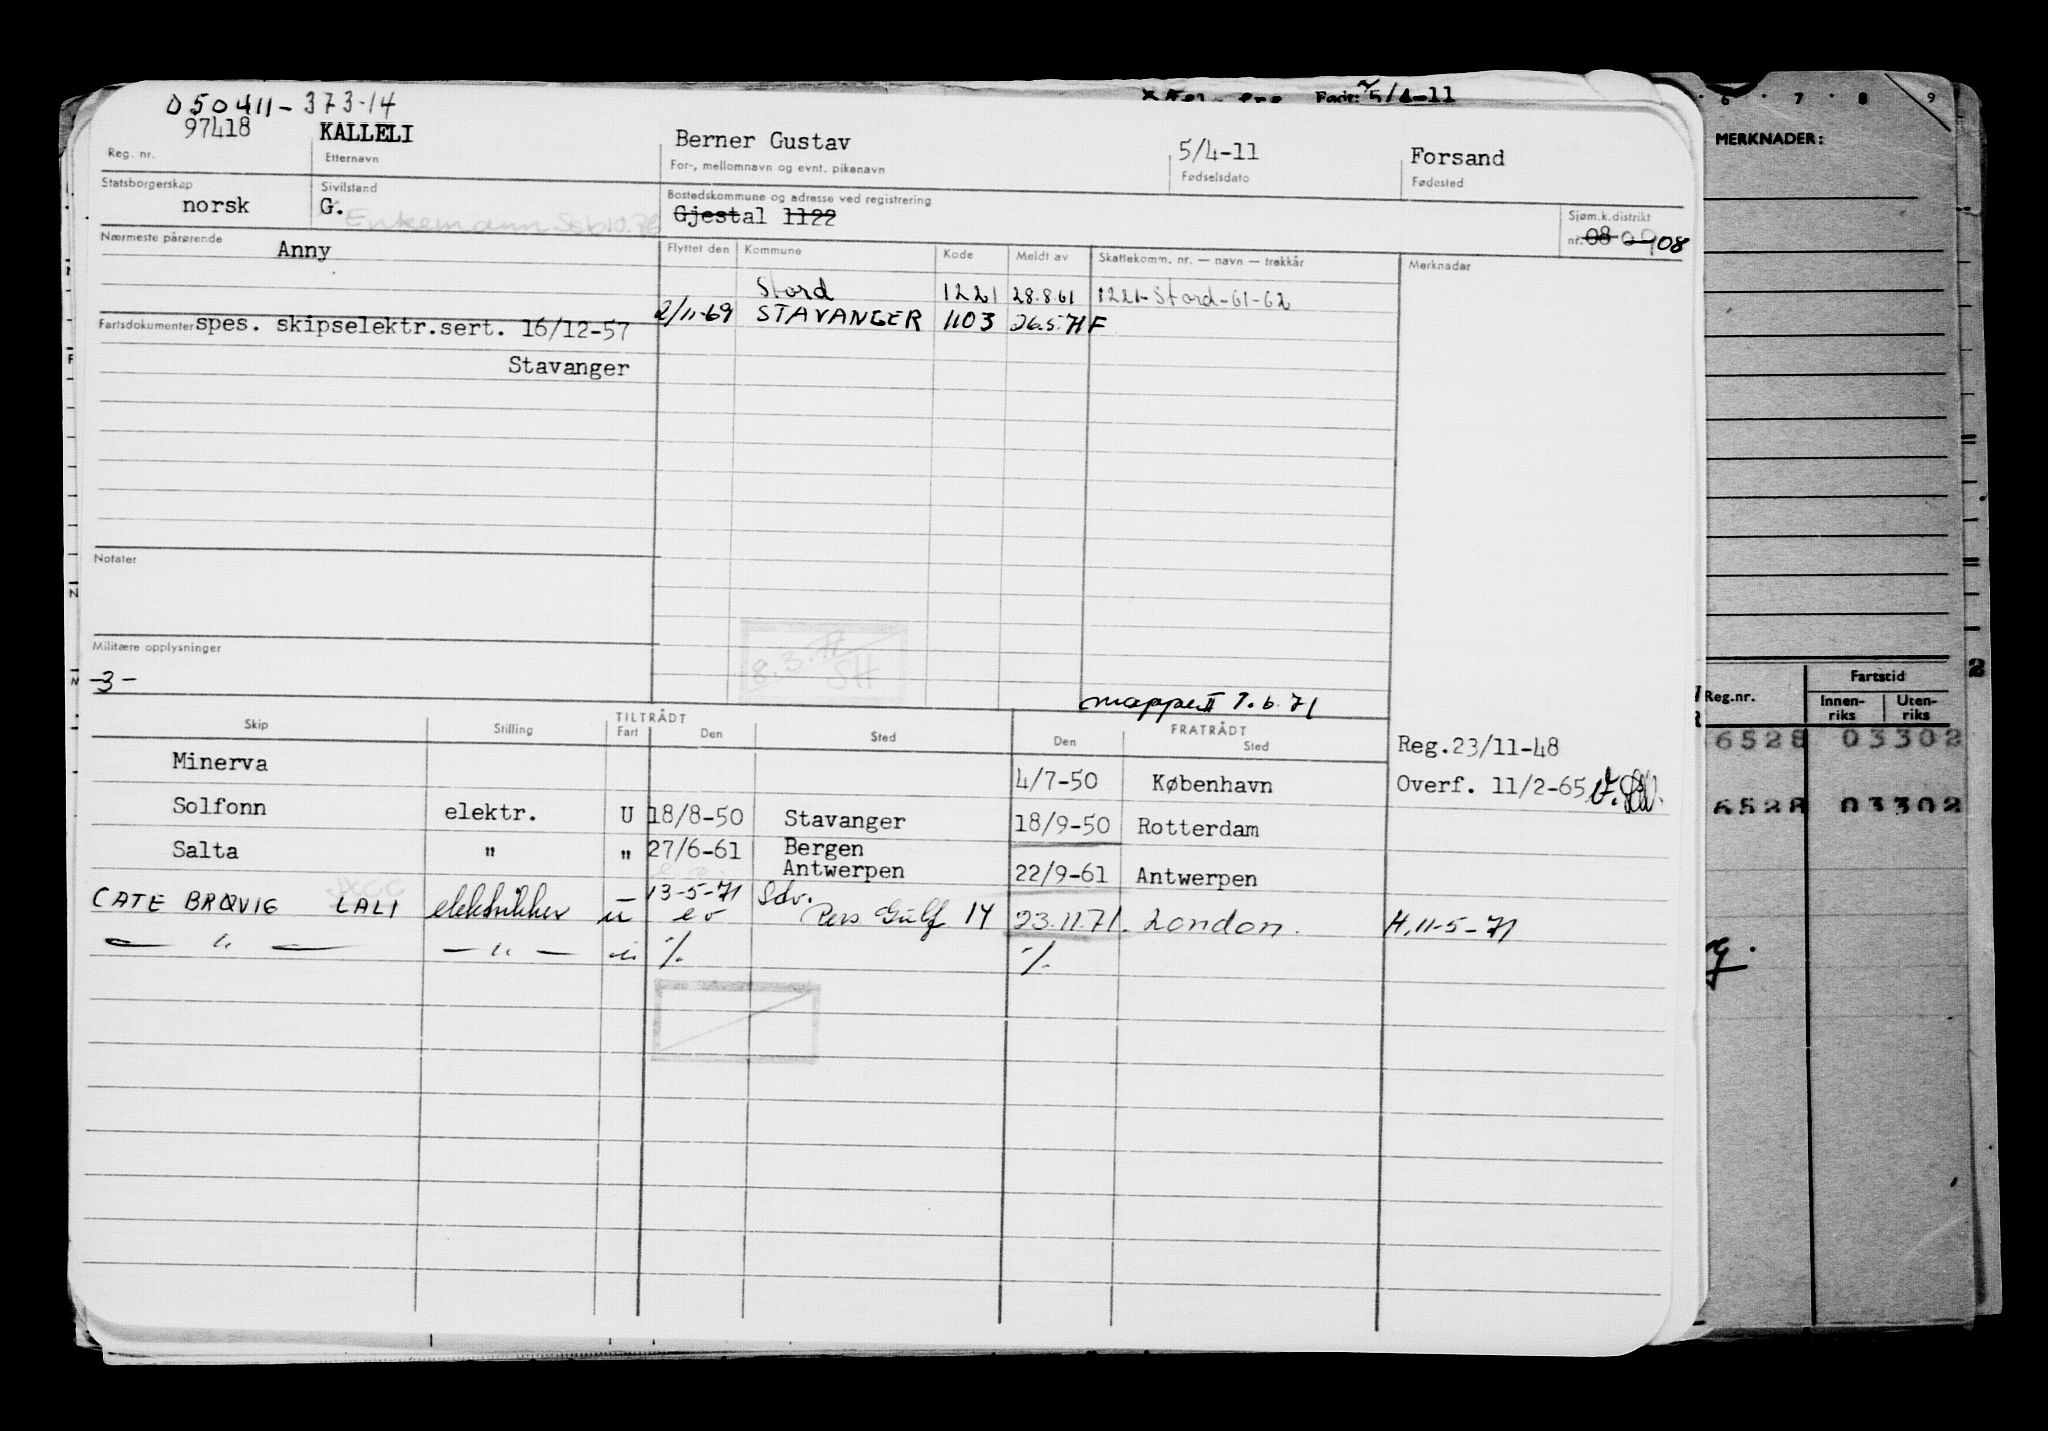 D 50411-373-14
Født: 5/4-11
97418 KALLELI Berner Gustav 5/4-11 Forsand
Reg. nr. Etternavn For-, mellomnavn og evnt. pikenavn Fødselsdato Fødested
Statsborgerskap Sivilstand Bostedskommune og adresse ved registrering Sjøm.k.distrikt
norsk G. Enkemann Gjestal 1122 nr. 08 09 08
Nærmeste pårørende Anny Flyttet den Kommune Kode Meldt av Skattekomm. nr. — navn — trekkår Merknader
Stord 1221 28.8.61 1221-Stord-61-62
2/11-69 STAVANGER 1103 26.5.71 F
Fartsdokumenter spes. skipselektr.sert. 16/12-57
Stavanger
Notater
8.3.71 SH
Militære opplysninger
-3-
mappe II 7.6.71
TILTRÅDT FRATRÅDT
Skip Stilling Fart Den Sted Den Sted
Reg.23/11-48
Minerva 4/7-50 København Overf. 11/2-65
Solfonn elektr. U 18/8-50 Stavanger 18/9-50 Rotterdam
Salta " " 27/6-61 Bergen
Antwerpen 22/9-61 Antwerpen
CATE BRØVIG LALI elektriker u 13-5-71 Sdv.
eo Pers Gulf 14 23.11.71. London. H. 11-5-71
— " — — " — " % %
6 7 8 9
MERKNADER:
Reg.nr. Fartstid
Innenriks Utenriks
6528 03302
6528 03302
2